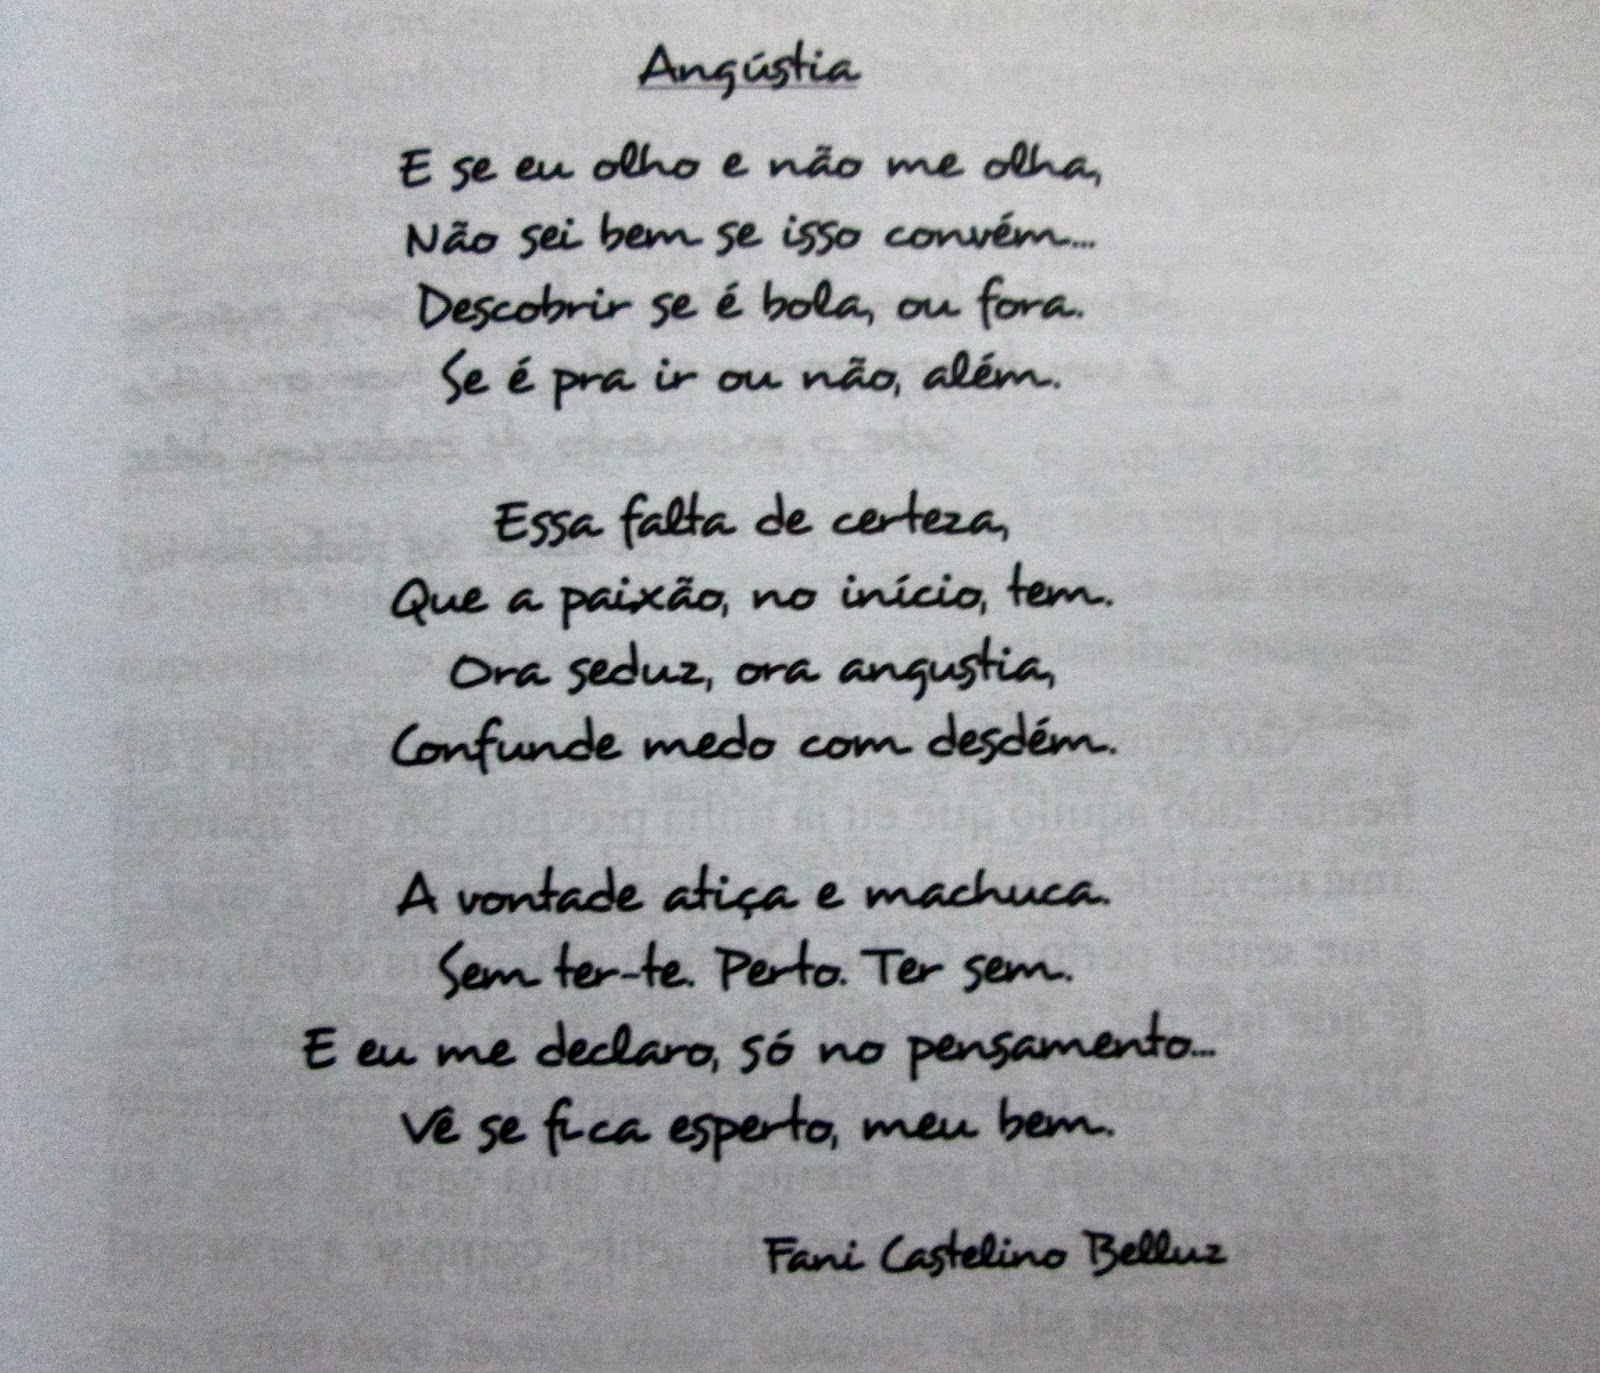 Angústia
E se eu olho e não me olha,
Não sei bem se isso convém...
Descobrir se é bola, ou fora.
Se é pra ir ou não, além.
Essa falta de certeza,
Que a paixão, no início, tem.
Ora seduz, ora angustia,
Confunde medo com desdém.
A vontade atiça e machuca.
Sem ter-te. Perto. Ter sem.
E eu me declaro, só no pensamento...
Vê se fica esperto, meu bem.
Fani Castelino Belluz